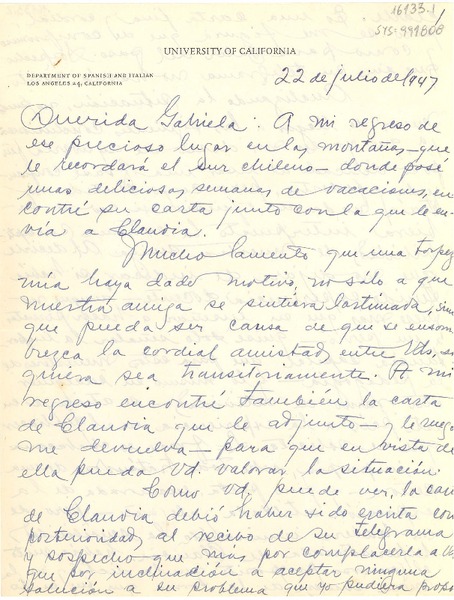 16133.1
SYS=991808
UNIVERSITY OF CALIFORNIA
DEPARTMENT OF SPANISH AND ITALIAN
LOS ANGELES 24, CALIFORNIA
22 de julio de 1947
Querida Gabriela: A mi regreso de
ese precioso lugar en las montañas—que
le recordará el sur chileno—donde pasé
unas deliciosas semanas de vacaciones, en
contré su carta junto con la que le en
vía a Claudia.
Mucho lamento que una torpeza
mía haya dado motivo, no sólo a que
nuestra amiga se sintiera lastimada, sino
que pueda ser causa de que se ensom
brezca la cordial amistad entre Uds, si
quiera sea transitoriamente. A mi
regreso encontré también la carta
de Claudia que le adjunto—y le ruego
me devuelva—para que en vista de
ella pueda Vd. valorar la situación.
Como Vd. puede ver, la carta
de Claudia debió haber sido escrita con
posterioridad al recibo de su telegrama
y sospecho que más por complacerla a Vd.
que por inclinación a aceptar ninguna
solución a su problema que yo pudiera propo